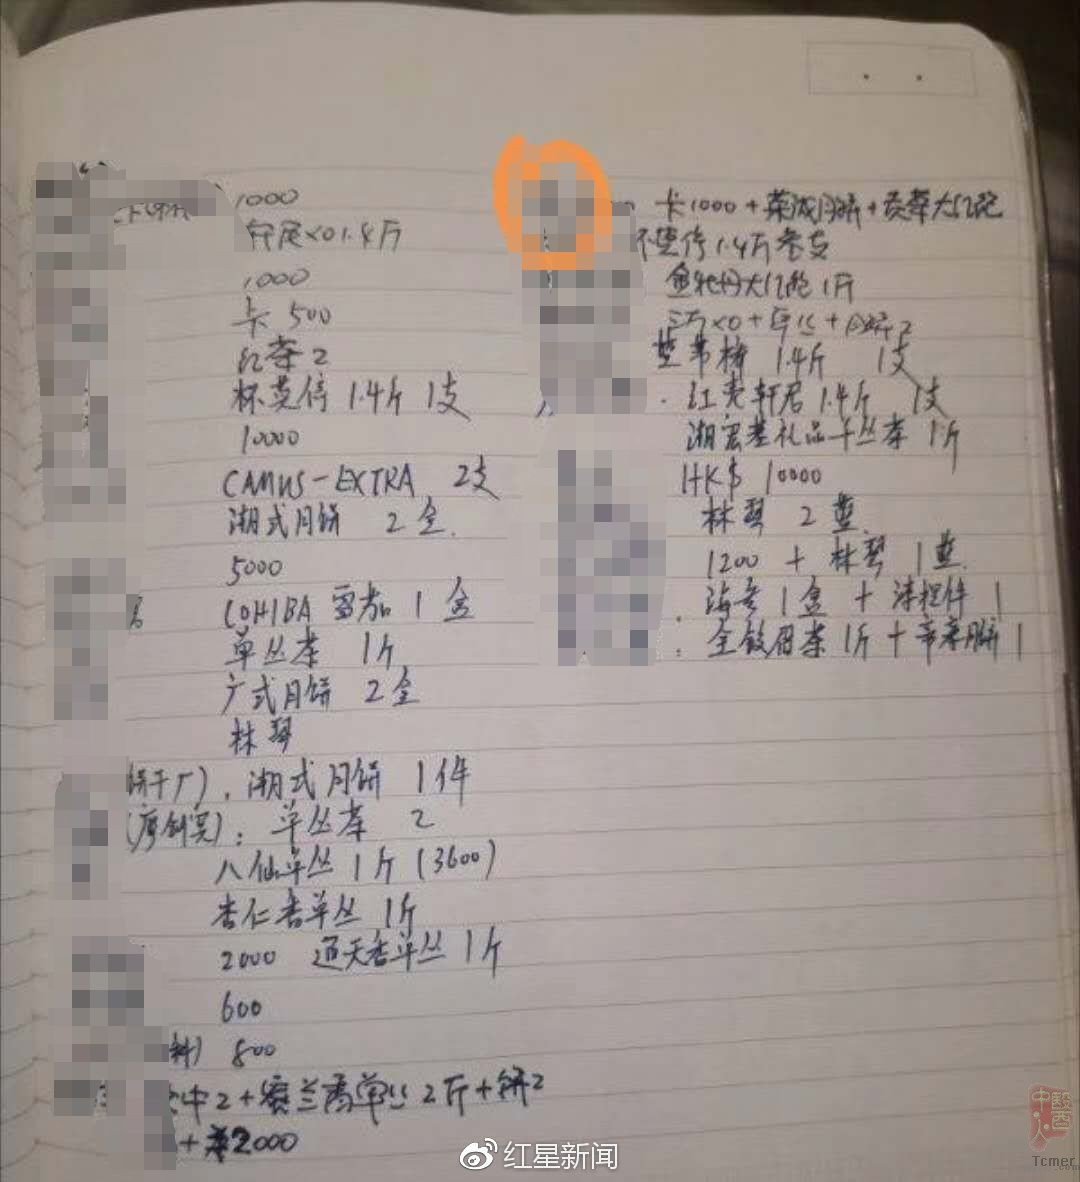 1000
1.4斤
1000
卡 500
红茶 2
杯莫停 1.4斤 1支
10000
CAMUS-EXTRA 2支
潮式月饼 2盒.
5000
COHIBA 雪茄 1盒
单丛茶 1斤
广式月饼 2盒
林琴
饼干厂), 潮式月饼 1件
): 单丛茶 2
八仙单丛 1斤 (3600)
杏仁香单丛 1斤
2000 通天香单丛 1斤
600
料) 800
中2+蜜兰香单丛 2斤+饼2
+茶2000
卡1000+月饼+大红袍
杯莫停 1.4斤 叁支
金牡丹大红袍 1斤
1.4斤 1支
轩君 1.4斤 1支
潮宏基礼品单丛茶 1斤
HK$ 10000
林琴 2
1200 + 林琴 1
海参 1盒 + 1
茶 1斤+月饼 1
红星新闻
中医人
Tcmer.com